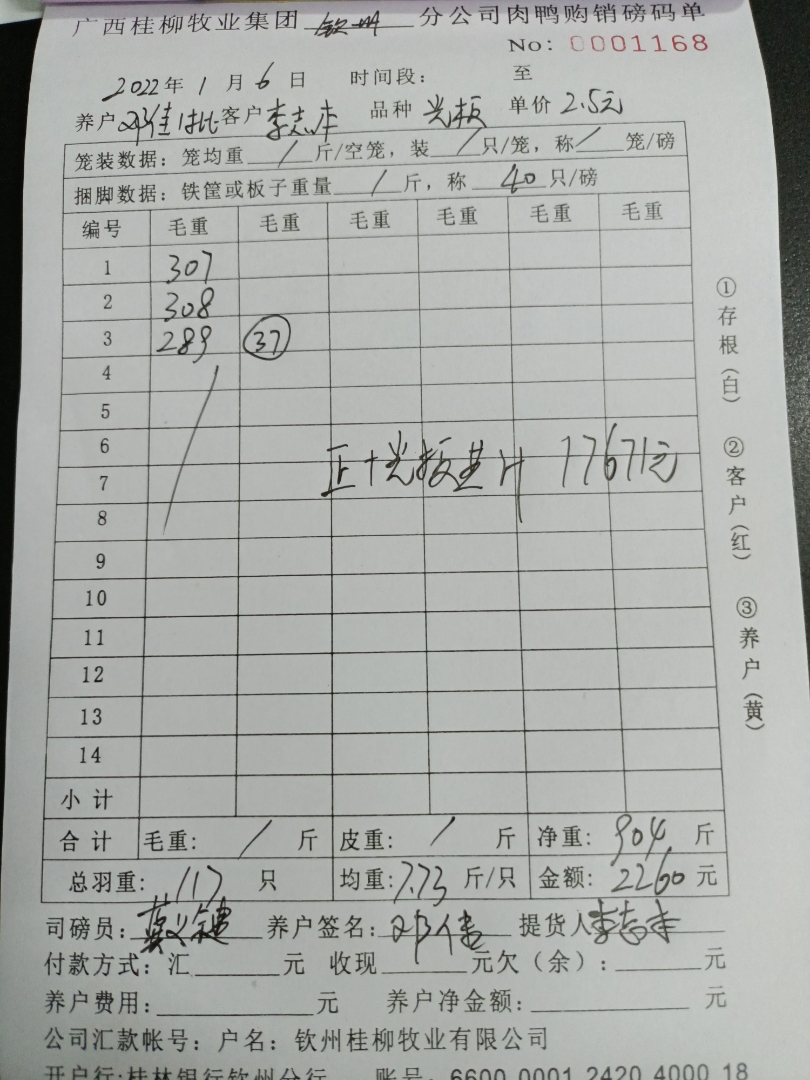 广西桂柳牧业集团 钦州 分公司肉鸭购销磅码单
No: 0001168
2022年 1 月 6 日 时间段: 至
养户 邓佳 批 客户 李志 品种 光板 单价 2.5元
笼装数据: 笼均重 / 斤/空笼, 装 / 只/笼, 称 / 笼/磅
捆脚数据: 铁筐或板子重量 / 斤, 称 40 只/磅
编号 毛重 毛重 毛重 毛重 毛重 毛重
1 307
2 308
3 289 37
4
5
6
正+光板共计 17671元
7
8
9
10
11
12
13
14
小计
合计 毛重: / 斤 皮重: / 斤 净重: 904 斤
总羽重: 117 只 均重: 7.73 斤/只 金额: 2260 元
司磅员: 养户签名: 邓佳 提货人 李志
付款方式: 汇 元 收现 元欠(余): 元
养户费用: 元 养户净金额: 元
公司汇款帐号: 户名: 钦州桂柳牧业有限公司
开户行:桂林银行钦州分行 账号: 6600 0001 2420 4000 18
①存根(白) ②客户(红) ③养户(黄)